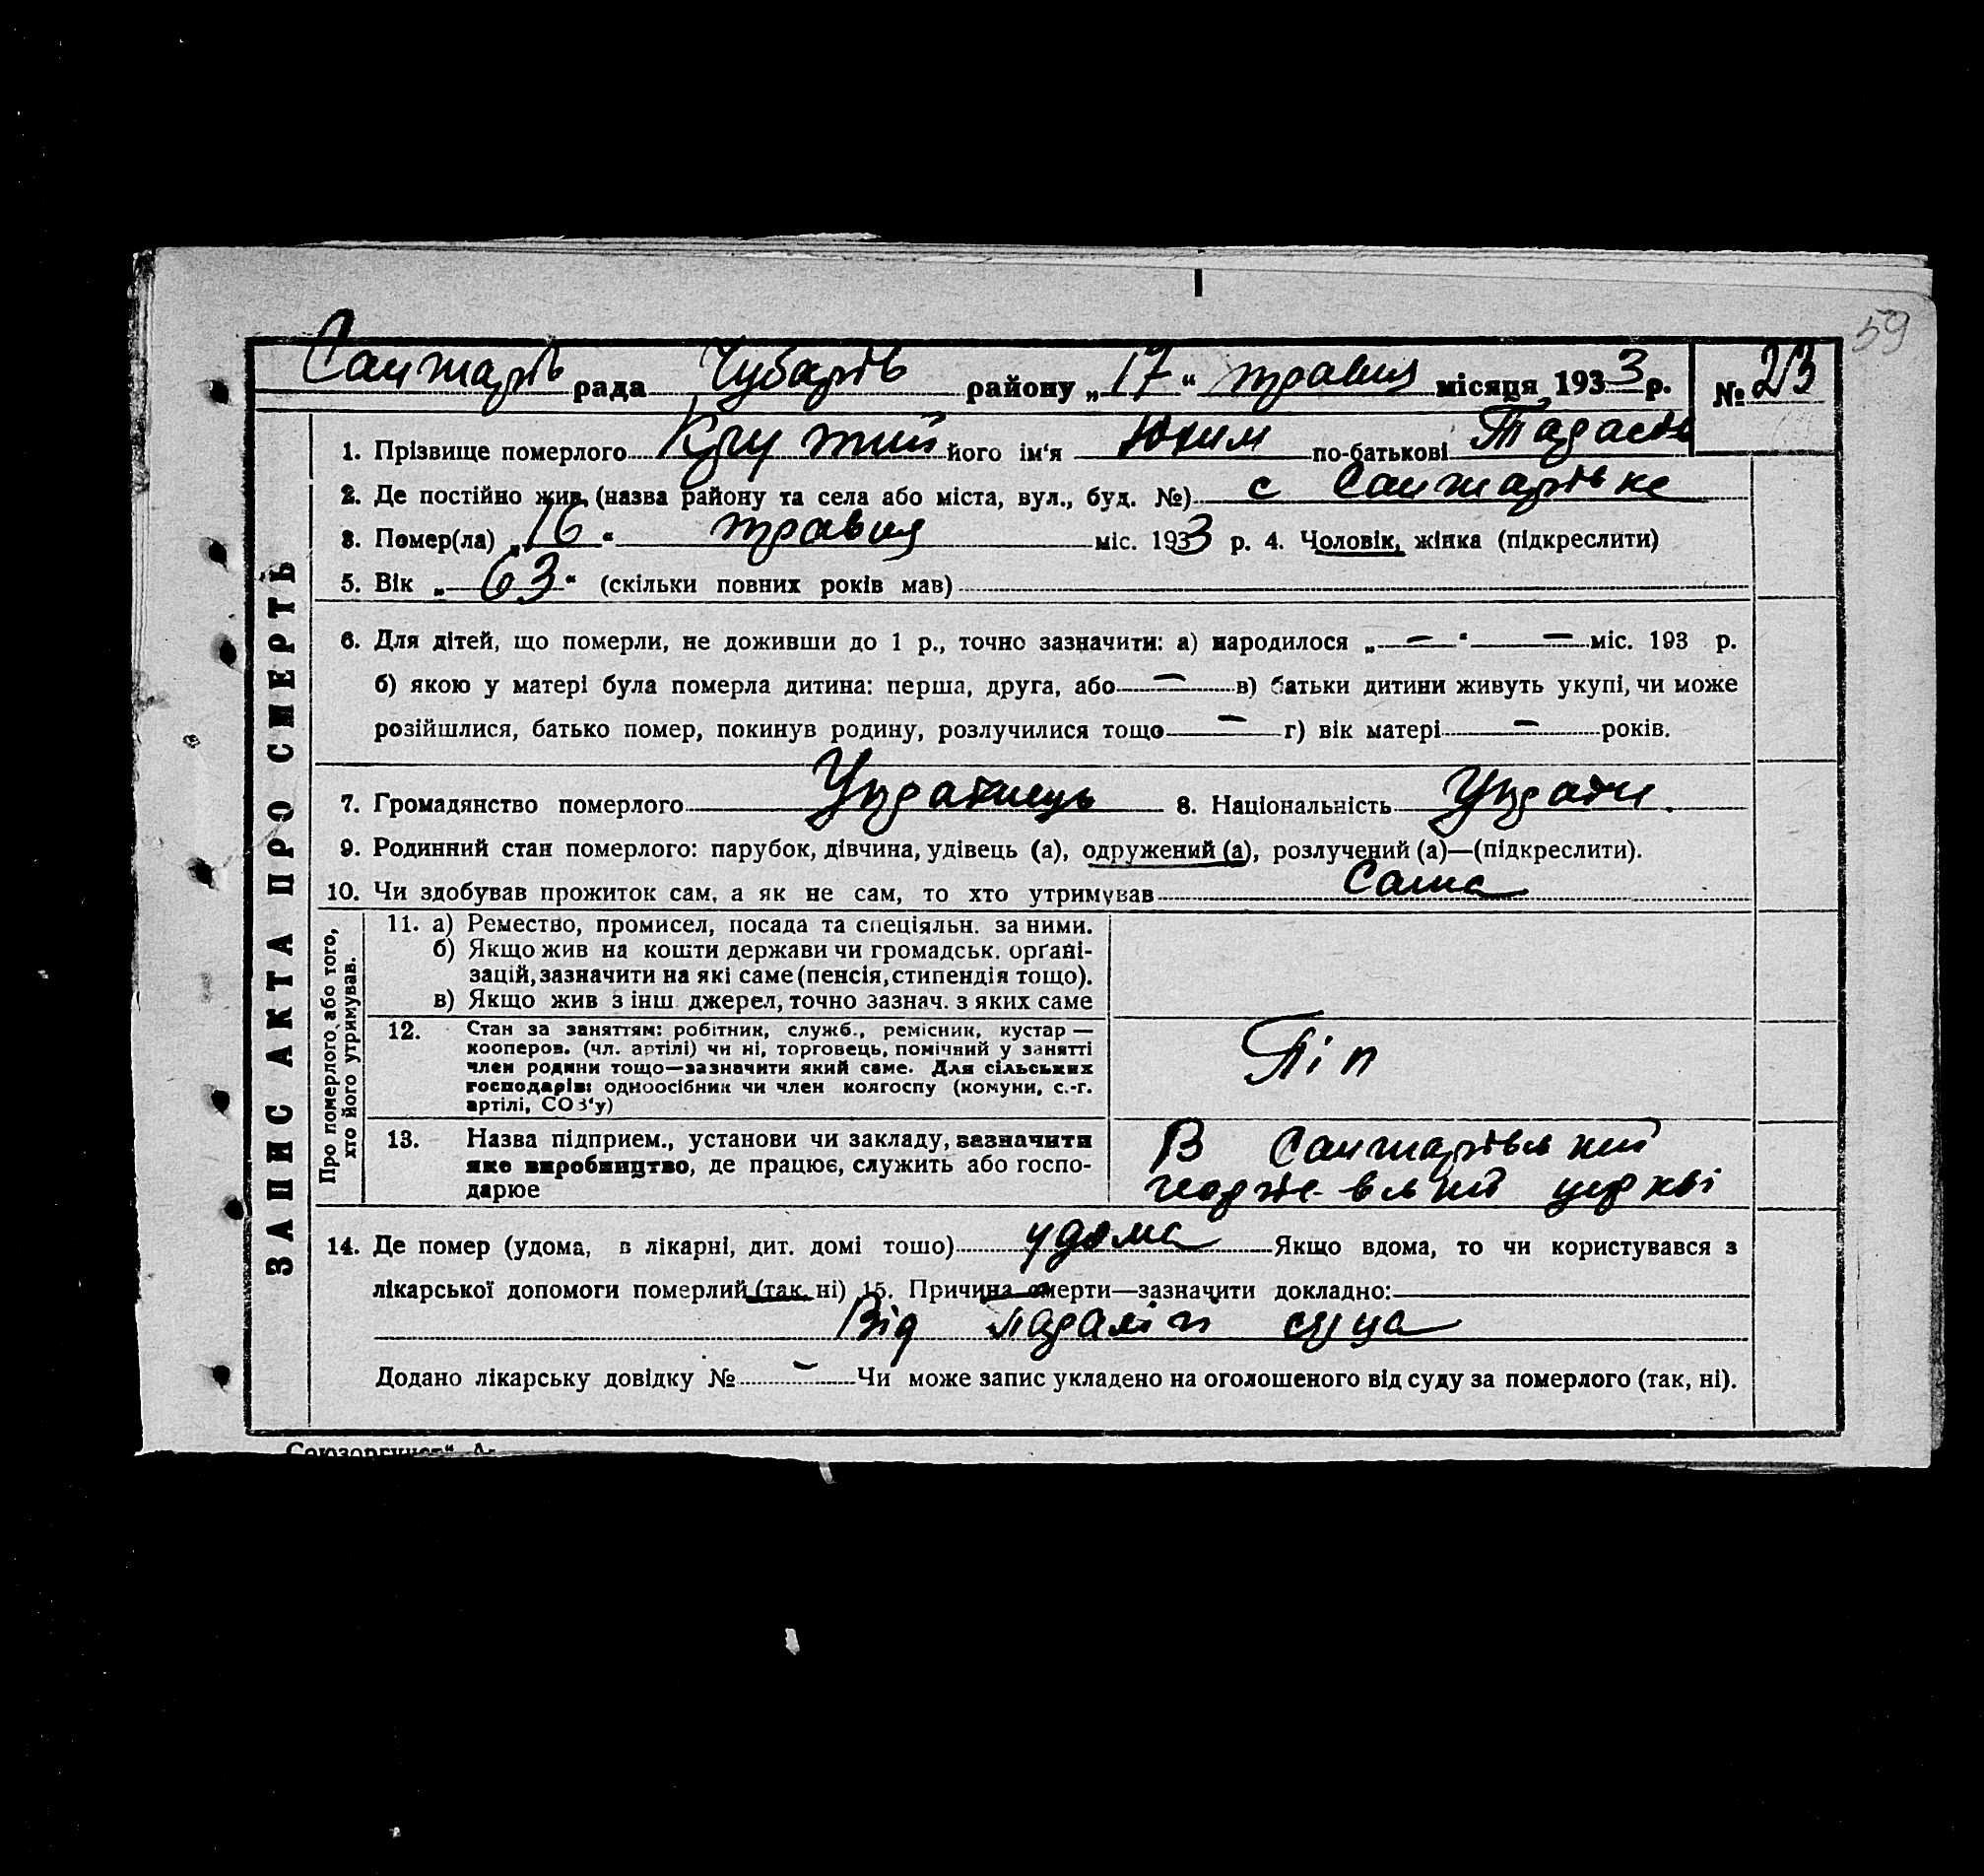 59
Санжарів рада Чубарів району „17“ травня місяця 1933 р. № 23
ЗАПИС АКТА ПРО СМЕРТЬ
1. Прізвище померлого Крутий його ім‘я Юхим по-батькові Тарасов
2. Де постійно жив (назва району та села або міста, вул., буд. №) с Санжарівка
3. Помер(ла) „16“ травня міс. 1933 р. 4. Чоловік, жінка (підкреслити)
5. Вік „63“ (скільки повних років мав)
6. Для дітей, що померли, не доживши до 1 р., точно зазначити: а) народилося „—“ — міс. 193 р.
б) якою у матері була померла дитина: перша, друга, або — в) батьки дитини живуть укупі, чи може
розійшлися, батько помер, покинув родину, розлучилися тощо — г) вік матері — років.
7. Громадянство померлого Українець 8. Національність Україн.
9. Родинний стан померлого: парубок, дівчина, удівець (а), одружений (а), розлучений (а)—(підкреслити).
10. Чи здобував прожиток сам, а як не сам, то хто утримував Сам
Про померлого, або того,
хто його утримував.
11. а) Ремество, промисел, посада та спеціяльн. за ними.
б) Якщо жив на кошти держави чи громадськ. орґані-
зацій, зазначити на які саме (пенсія, стипендія тощо).
в) Якщо жив з інш джерел, точно зазнач. з яких саме
12. Стан за заняттям: робітник, служб., ремісник, кустар —
кооперов. (чл. артілі) чи ні, торговець, помічний у занятті
член родини тощо—зазначити який саме. Для сільських
господарів: одноосібник чи член колгоспу (комуни, с.-г.
артілі, СОЗ‘у)
Піп
13. Назва підприєм., установи чи закладу, зазначити
яке виробництво, де працює, служить або госпо-
дарює
В Санжарівській
церкві
14. Де помер (удома, в лікарні, дит. домі тошо) удома Якщо вдома, то чи користувався з
лікарської допомоги померлий (так, ні) 15. Причина смерти—зазначити докладно:
Від параліч сірца
Додано лікарську довідку № — Чи може запис укладено на оголошеного від суду за померлого (так, ні).